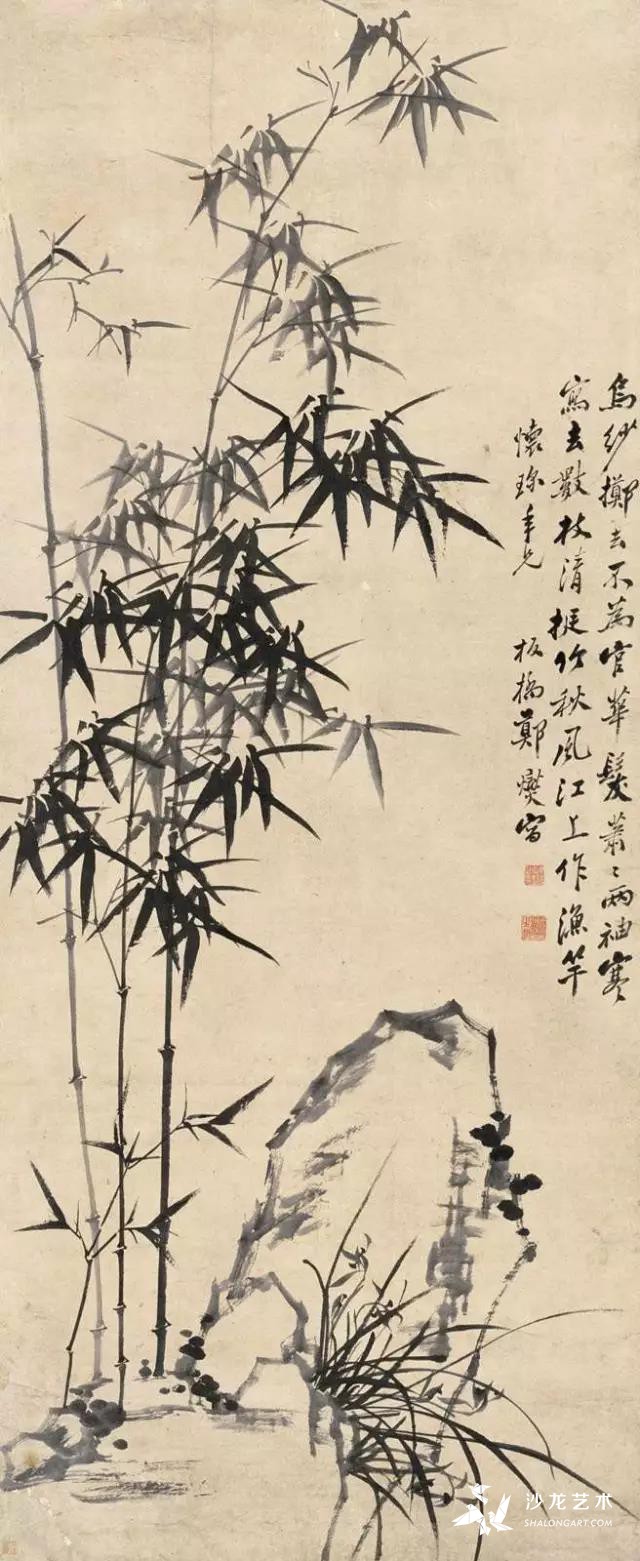 烏紗擲去不為官華髮蕭〻兩袖寒
寫去數枝清挺竹秋風江上作漁竿
懷珎年兄
板橋鄭燮寫
沙龙艺术
SHALONGART.COM